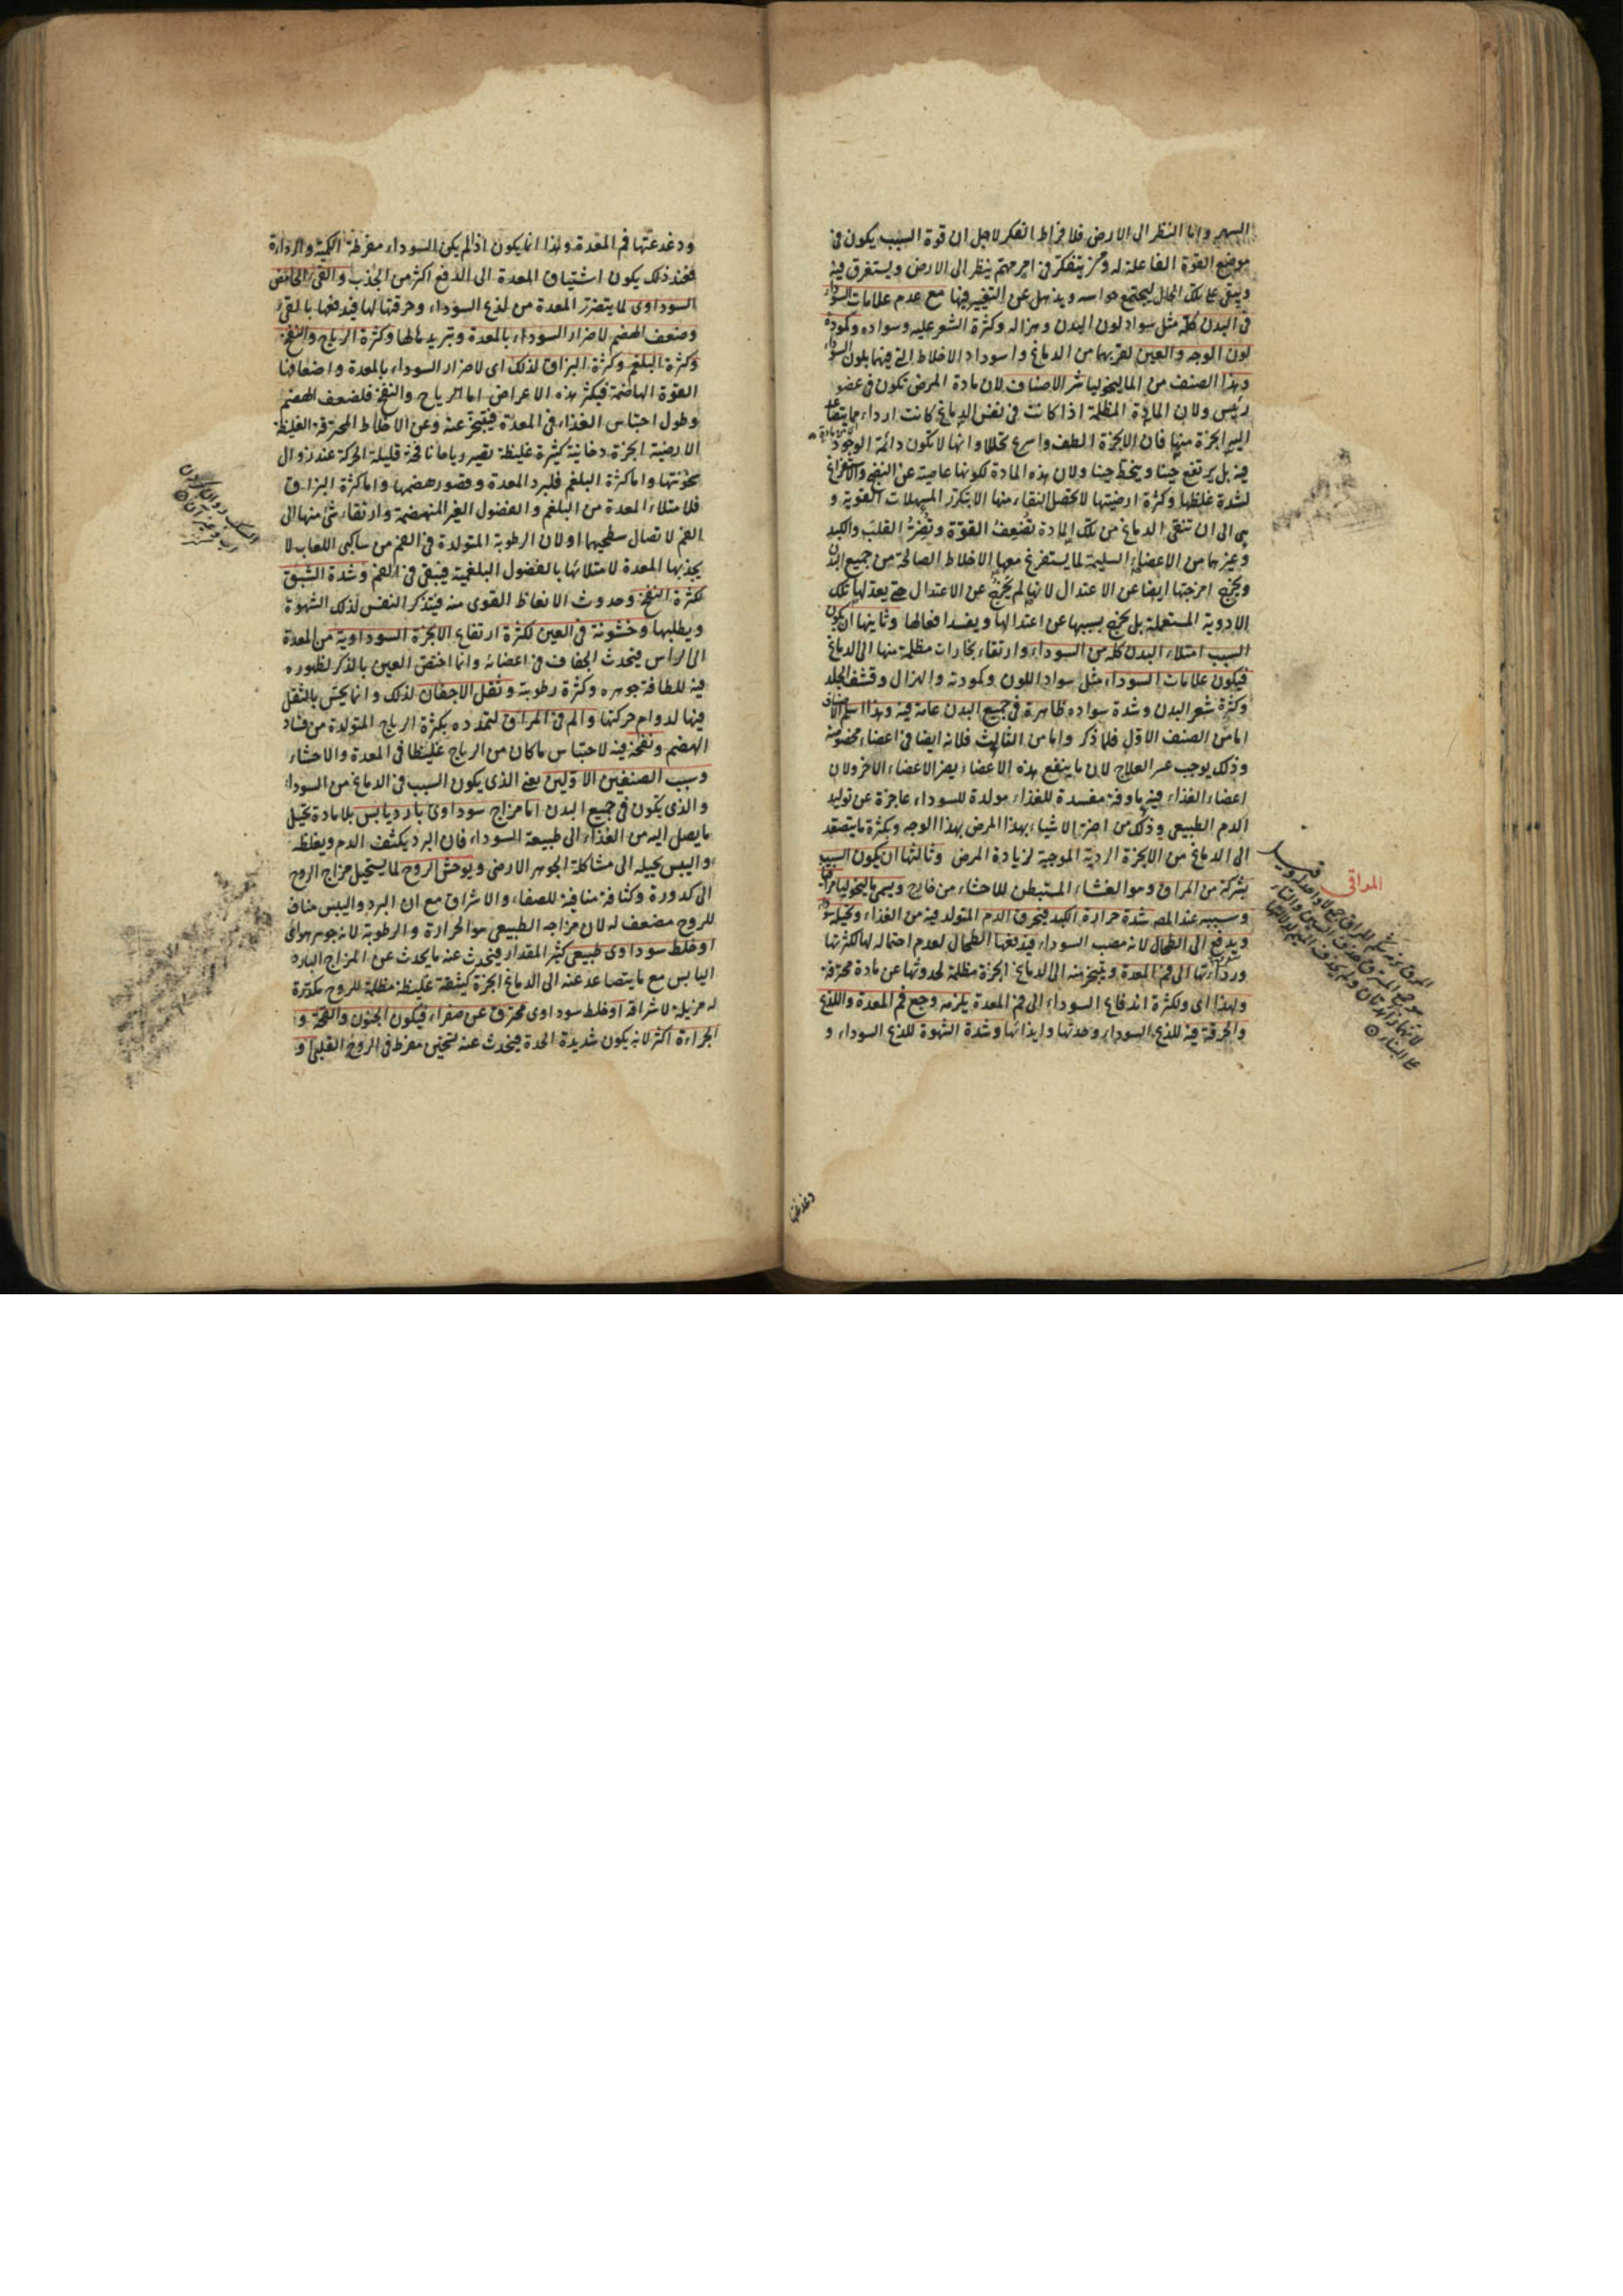 السهر واما النظر الى الارض فلافراط الفكر لاجل ان قوة السبب يكون فى
موضع القوة الفاعلة له ومن يتفكر فى امر مهتم ينظر الى الارض ويستغرق فيه
ويبقى على تلك الحال ليجتمع حواسه ويذهل عن التغيير فيها مع عدم علامات السوداء
فى البدن كله مثل سواد لون البدن وهزاله وكثرة الشعر عليه وسواده وكمودة
لون الوجه والعين لقربهما من الدماغ واسوداد الاخلاط التى فيهما بلون السوداء
وهذا الصنف من الماليخوليا شر الاصناف لان مادة المرض تكون فى عضو
رئيس ولان المادة المظلمة اذا كانت فى نفس الدماغ كانت اردأ مما يتصاعد
اليه ابخرة منها فان الابخرة الطف واسرع تحللا وانها لا تكون دائمة الوجود
فيه بل يرتفع حينا وينحط حينا ولان هذه المادة لكونها عاصية عن النضج والاستفراغ
لشدة غلظها وكثرة ارضيتها لا يحصل النقاء منها الا بتكرر المسهلات القوية و
هى الى ان تنقى الدماغ من تلك المادة تضعف القوة وتضر القلب والكبد
وغيرهما من الاعضاء السليمة لما يستفرغ معها الاخلاط الصالحة من جميع البدن
ويخرج امزجتها ايضا عن الاعتدال لانها لم يخرج عن الاعتدال حتى يعدلها تلك
الادوية المستعملة بل يخرج بسببها عن اعتدالها ويفسد افعالها وثانيها ان يكون
السبب امتلاء البدن كله من السوداء وارتقاء بخارات مظلمة منها الى الدماغ
فيكون علامات السوداء مثل سواد اللون وكمودته والهزال وقشف الجلد
وكثرة شعر البدن وشدة سواده ظاهرة فى جميع البدن عامة فيه وهذا اسلم الاصناف
اما من الصنف الاول فلما ذكر واما من الثالث فلانه ايضا فى اعضاء مخصوصة
وذلك يوجب عسر العلاج لان ما ينفع هذه الاعضاء يضر الاعضاء الاخر ولان
اعضاء الغذاء فيه ماوفة مفسدة للغذاء مولدة للسوداء عاجزة عن توليد
الدم الطبيعى وذلك من اضر الاشياء بهذا المرض بهذا الوجه وبكثرة ما يتصعد
الى الدماغ من الابخرة الردية الموجبة لزيادة المرض وثالثها ان يكون السبب
بشركة من المراق وهو الغشاء المستبطن للاحشاء من خارج ويسمى ماليخوليا مراقى
وسببه عند المص شدة حرارة الكبد فيحرق الدم المتولد فيه من الغذاء ويحيله سوداء
ويدفع الى الطحال لانه مصب السوداء فيدفعها الطحال لعدم احتماله لها لكثرتها
ورداءتها الى فم المعدة ويتبخر منه الى الدماغ ابخرة مظلمة لحدوثها عن مادة محترقة
ولهذا اى ولكثرة اندفاع السوداء الى فم المعدة يلزمه وجع فم المعدة واللذع
والحرقة فيه للذع السوداء وحدتها وايذائها وشدة الشهوة للذع السوداء و
المراقى
دغدغتها
ودغدغتها فم المعدة وهذا انما يكون اذا لم يكن السوداء مفرطة الكمية والرداءة
فعند ذلك يكون اشتياق المعدة الى الدفع اكثر من الجذب والقئ الحامض
السوداوى لما يتضرر المعدة من لذع السوداء وحرقتها لها فيدفعها بالقئ
وضعف الهضم لاضرار السوداء بالمعدة وتبريدها لها وكثرة الرياح والنفخ
وكثرة البلغم وكثرة البزاق لذلك اى لاضرار السوداء بالمعدة واضعافها
القوة الهاضمة فيكثر هذه الاعراض اما الرياح والنفخ فلضعف الهضم
وطول احتباس الغذاء فى المعدة فيتبخر عنه وعن الاخلاط المحترقة الغليظة
الارضية ابخرة دخانية كثيرة غليظة تصير رياحا نافخة قليلة الحركة عند زوال
سخونتها واما كثرة البلغم فلبرد المعدة وقصور هضمها واما كثرة البزاق
فلامتلاء المعدة من البلغم والفضول الغير المنهضمة وارتقاء شئ منها الى
الفم لاتصال سطحيهما او لان الرطوبة المتولدة فى الفم من ساكبى اللعاب لا
يجذبها المعدة لامتلائها بالفضول البلغمية فيبقى فى الفم وشدة الشبق
لكثرة النفخ وحدوث الانعاظ القوى منه فيتذكر النفس لذلك الشهوة
ويطلبها وخشونة فى العين لكثرة ارتفاع الابخرة السوداوية من المعدة
الى الراس فيحدث الجفاف فى اعضائه وانما اختص العين بالذكر لظهوره
فيه للطافة جوهره وكثرة رطوبته وثقل الاجفان لذلك وانما يحس بالثقل
فيها لدوام حركتها والم فى المراق لتمدده بكثرة الرياح المتولدة من فساد
الهضم ونفخة فيه لاحتباس ما كان من الرياح غليظا فى المعدة والاحشاء
وسبب الصنفين الاولين يعنى الذى يكون السبب فى الدماغ من السوداء
والذى يكون فى جميع البدن اما مزاج سوداوى بارد يابس بلا مادة تحيل
ما يصل اليه من الغذاء الى طبيعة السوداء فان البرد يكثف الدم ويغلظه
واليبس يحيله الى مشاكلة الجوهر الارضى ويوحش الروح لما يستحيل مزاج الروح
الى كدورة وكثافة منافية للصفاء والاشراق مع ان البرد واليبس مناف
للروح مضعف له لان مزاجه الطبيعى هو الحرارة والرطوبة لانه جوهر هوائى
او خلط سوداوى طبيعى كثير المقدار فيحدث عنه ما يحدث عن المزاج البارد
اليابس مع ما يتصاعد عنه الى الدماغ ابخرة كثيفة غليظة مظلمة للروح مكدرة
له مزيلة لاشراقه او خلط سوداوى محترق عن صفراء فيكون الجنون والقحة و
الجراءة اكثر لانه يكون شديدة الحدة فيحدث عنه تسخين مفرط فى الروح القلبى و